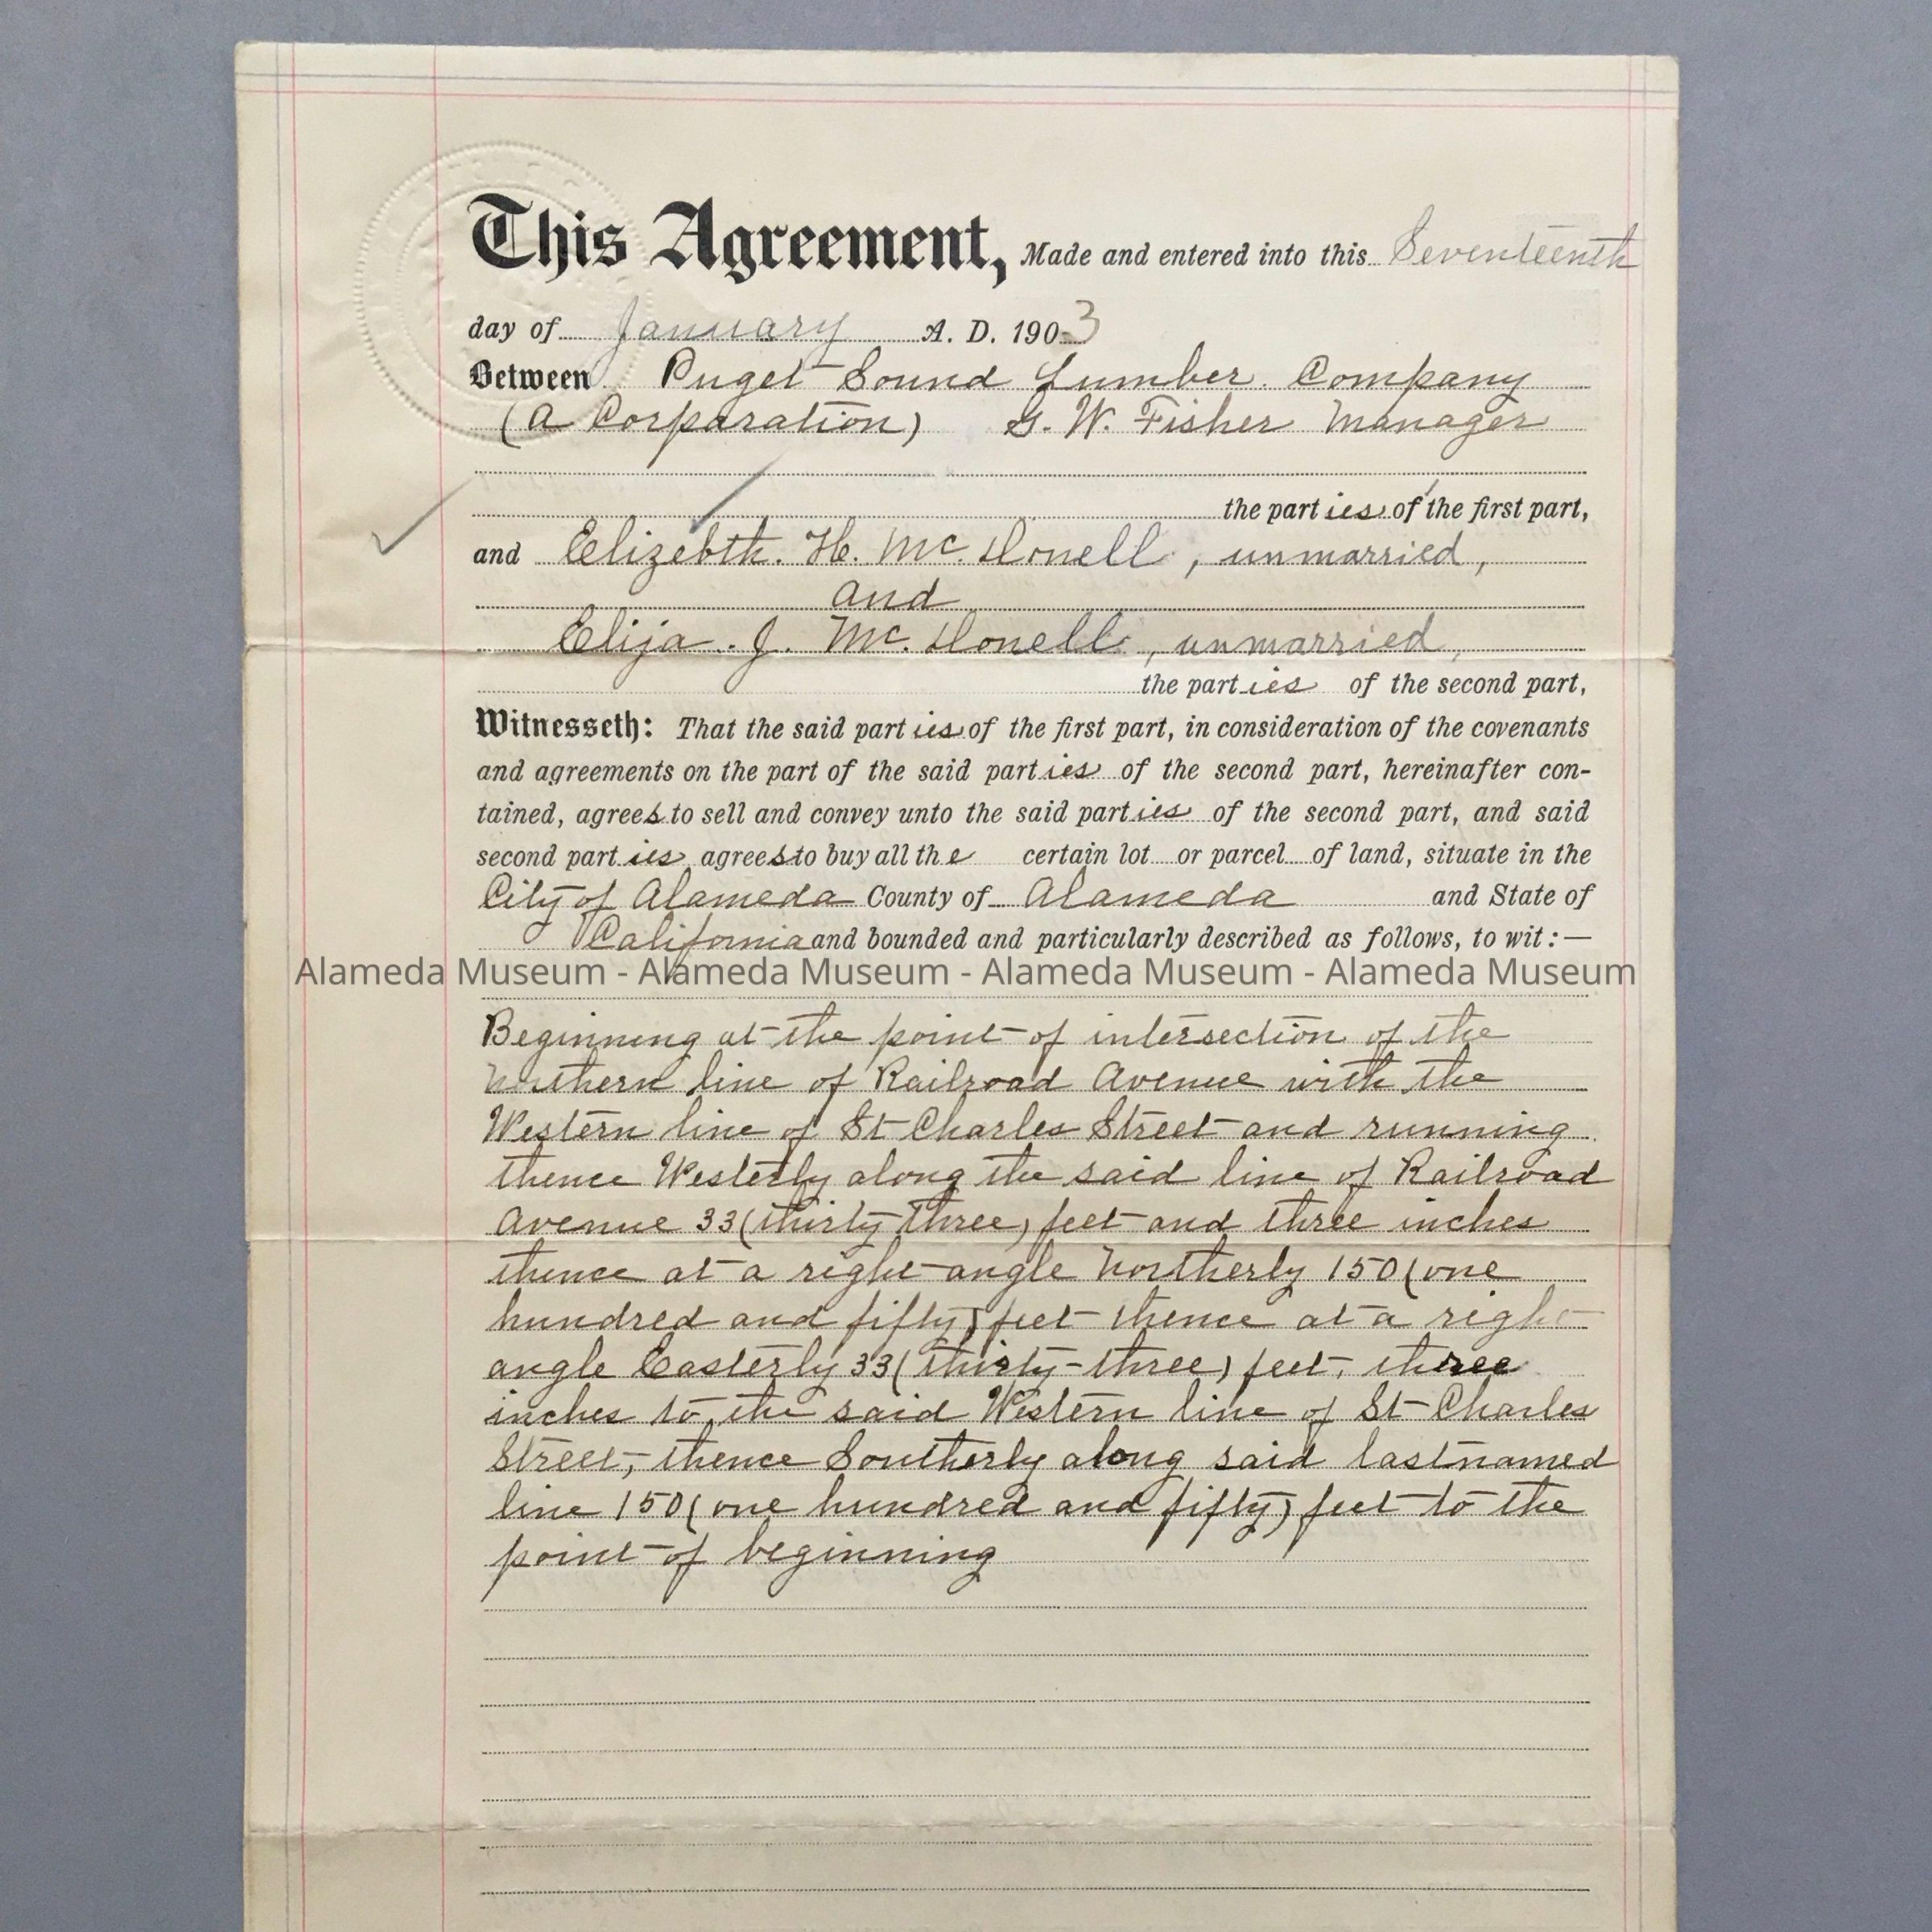 This Agreement, Made and entered into this Seventeenth
day of January A. D. 1903
Between Puget Sound Lumber Company
(a Corporation) G. W. Fisher Manager
the parties of the first part,
and Elizebth. H. Mc. Donell, unmarried,
and
Elija. J. Mc. Donell, unmarried,
the parties of the second part,
Witnesseth: That the said parties of the first part, in consideration of the covenants
and agreements on the part of the said parties of the second part, hereinafter con-
tained, agrees to sell and convey unto the said parties of the second part, and said
second parties agrees to buy all the certain lot or parcel of land, situate in the
City of Alameda County of Alameda and State of
California and bounded and particularly described as follows, to wit:—
Alameda Museum - Alameda Museum - Alameda Museum - Alameda Museum
Beginning at the point of intersection of the
Northern line of Railroad Avenue with the
Western line of St Charles Street and running
thence Westerly along the said line of Railroad
Avenue 33 (thirty three) feet and three inches
thence at a right angle Northerly 150 (one
hundred and fifty) feet thence at a right
angle Easterly 33 (thirty-three) feet, three
inches to the said Western line of St Charles
Street, thence Southerly along said lastnamed
line 150 (one hundred and fifty) feet to the
point of beginning